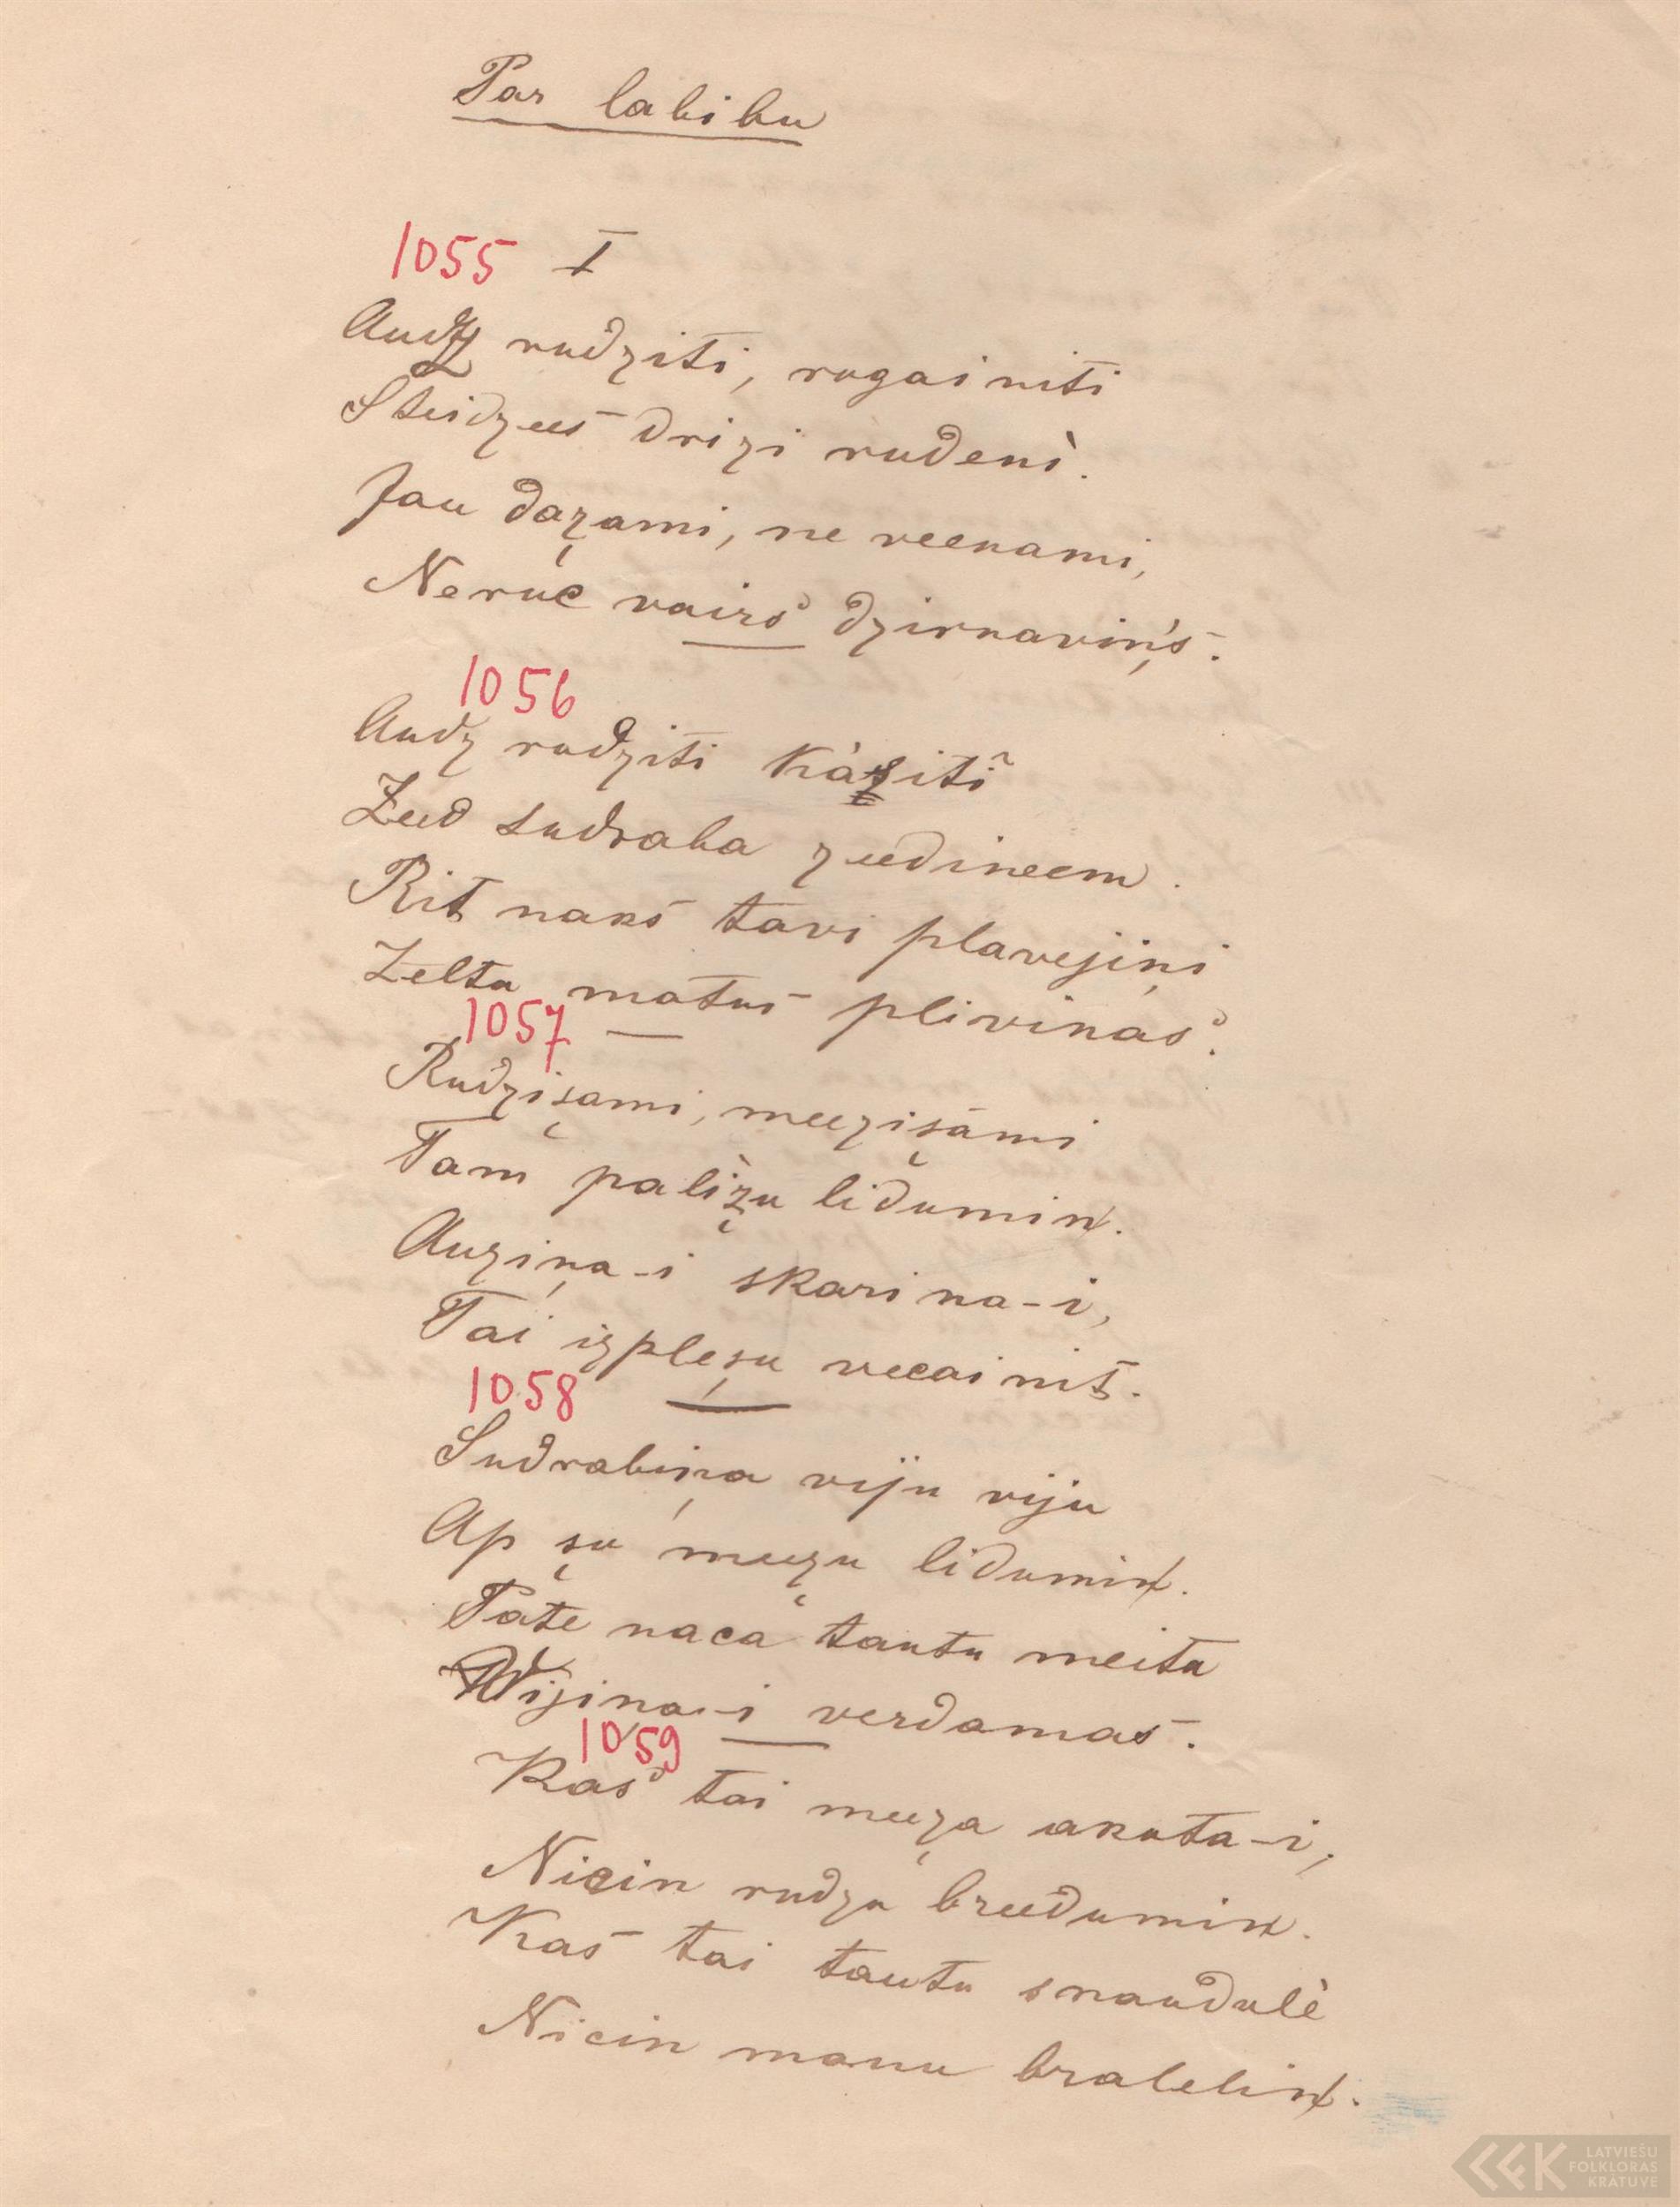 Par labibu
1055 I
Audz rudziti, rogainiti
Steidzees drizi rudenì.
Jau daz̧ami, ne veenami,
Neruc vairs dzirnaviņs.
1056
Audz rudziti kàsiti
Zeed sudraba zeedineem.
Rit naks tavi plavejiņi
Zelta matus plivinas.
1057
Rudzişami, meezişami
Tam paliz̧u lidumin.
Auziņa-i skarina-i,
Tai izpleşu vecainit.
1058
Sudrabiņa viju viju
Ap şu meez̧u lidumin.
Pate naca tautu meita
Vijina-i verdamas.
1059
Kas tai meez̧a akota-i,
Nicin rudzu breedumin.
Kas tai tautu snaudulè
Nicin manu bralelin.
LATVIEŠU
FOLKLORAS
KRĀTUVE